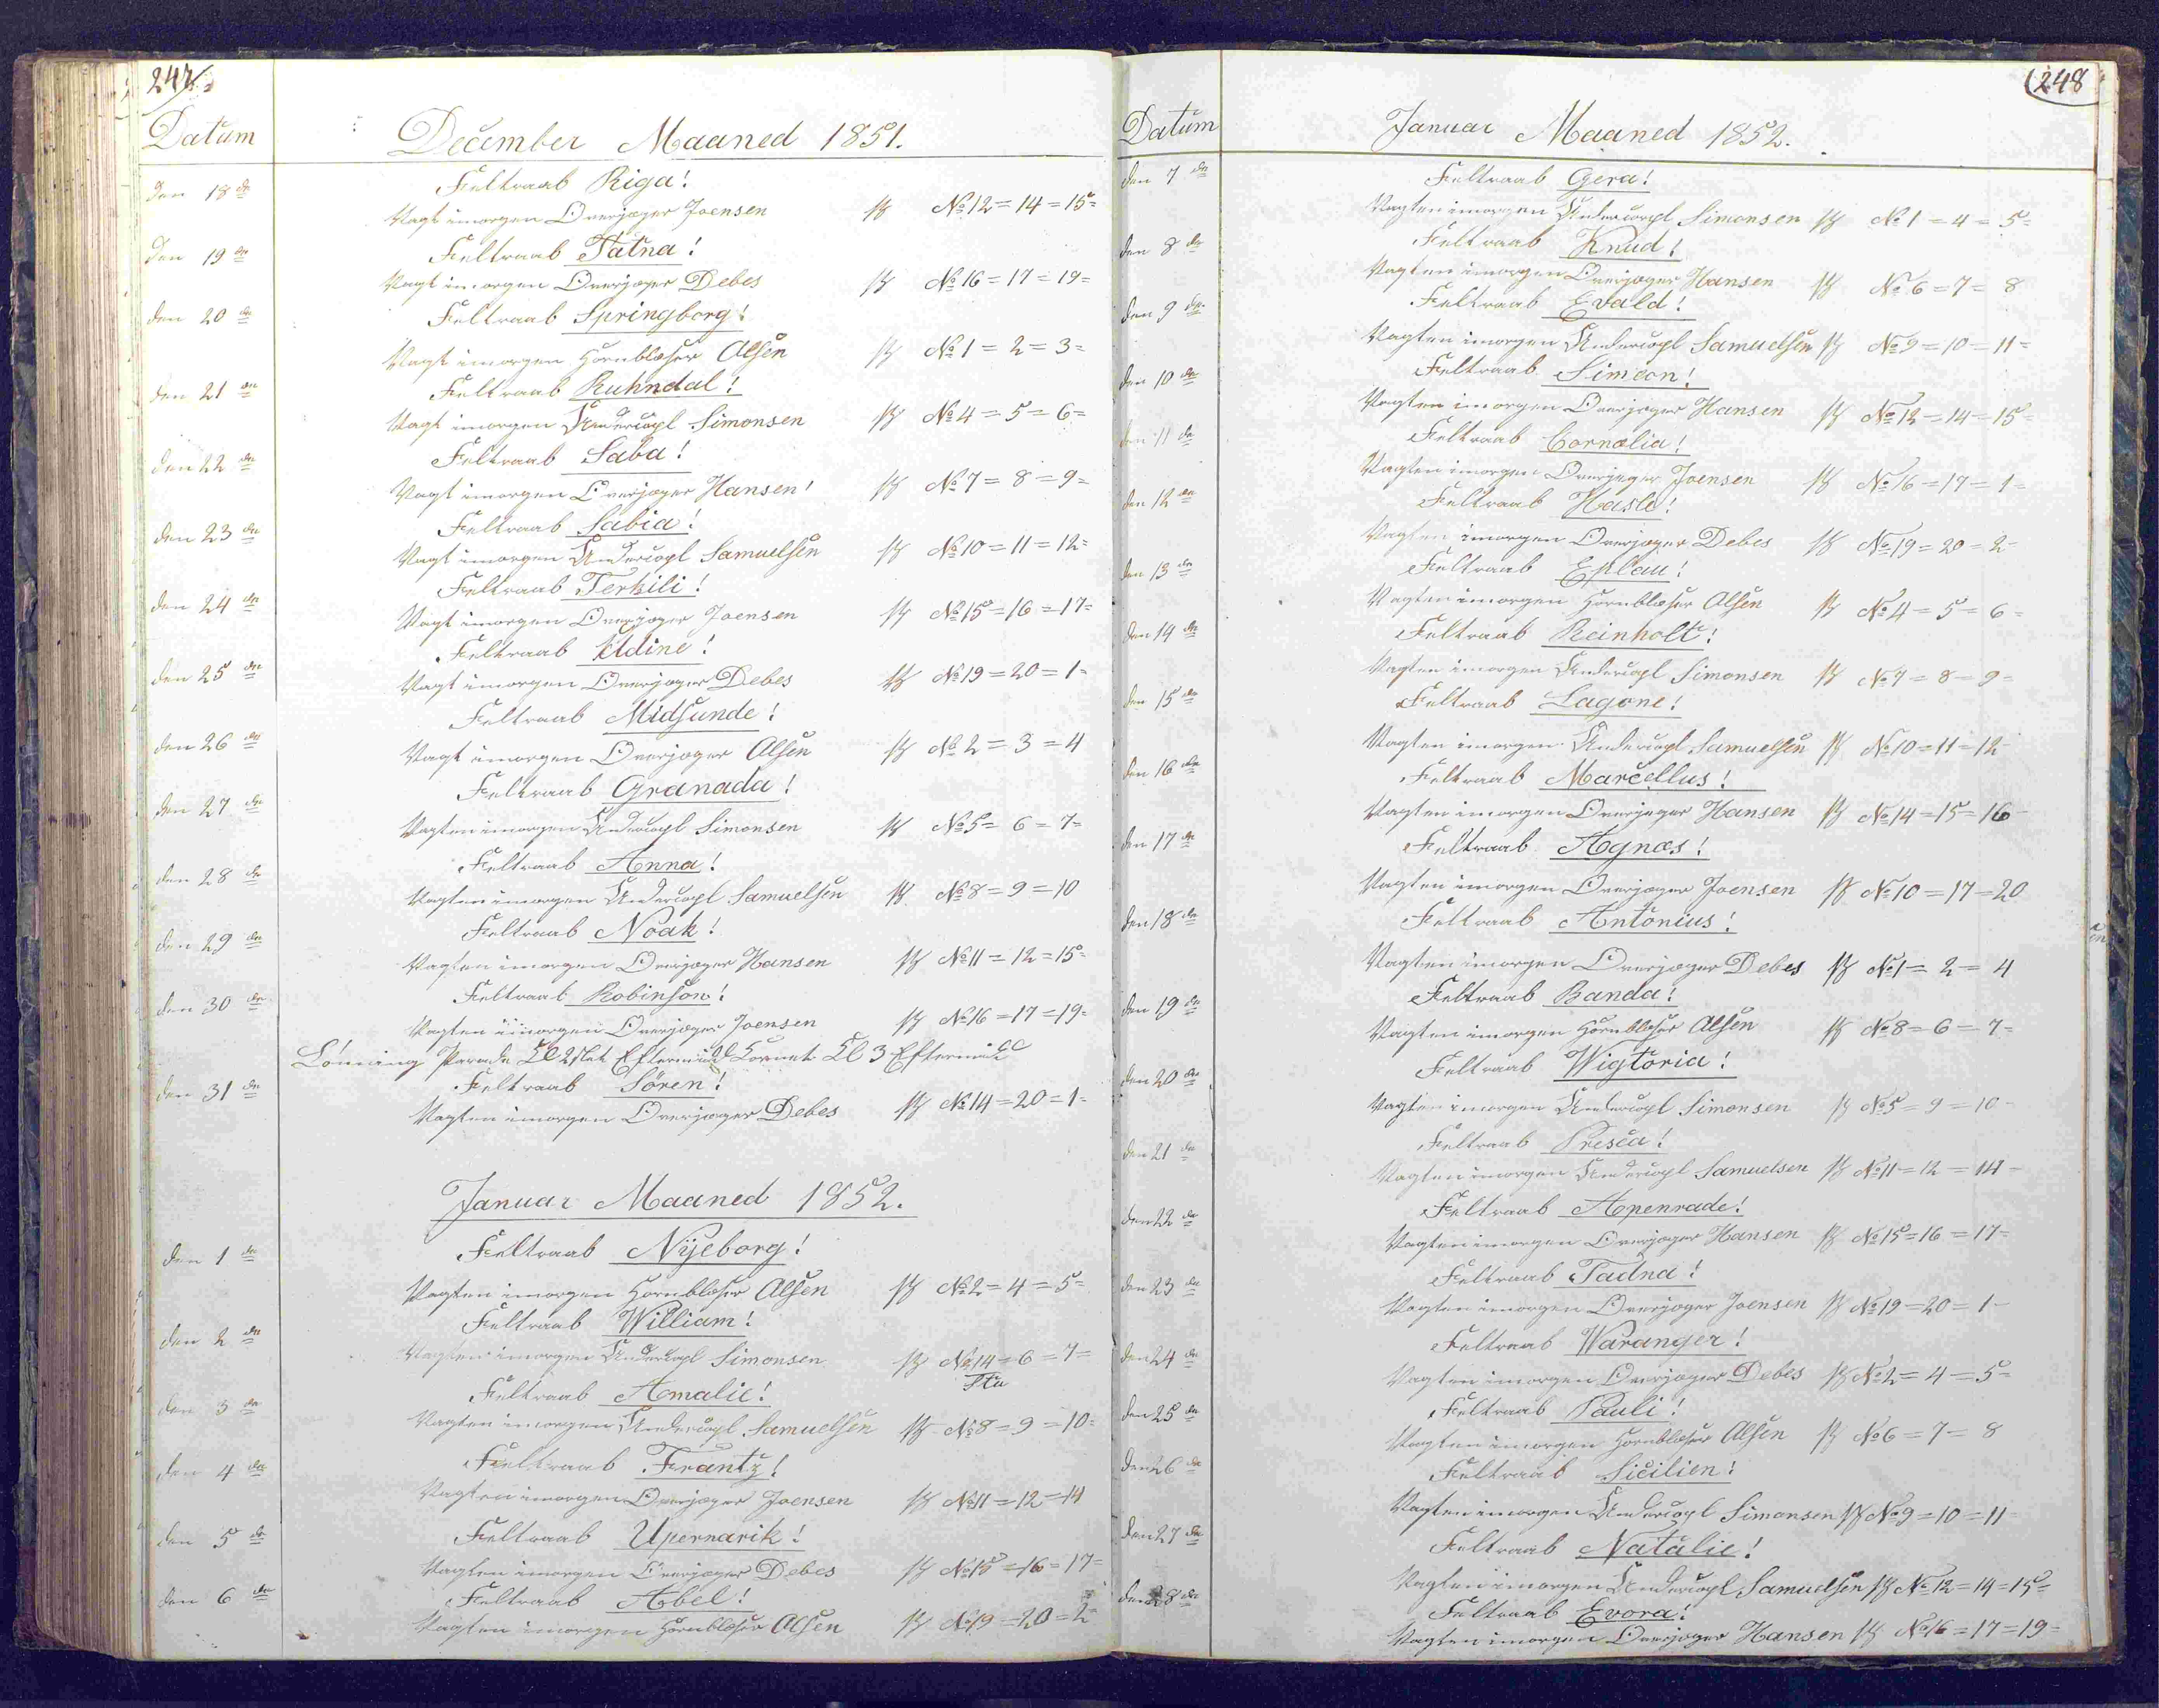 247
Datum
December Maaned 1851.
den 18 de
Feltraab Riga!
Vagt imorgen Overjæger Joensen № 12 = 14 = 15 =
den 19 de
Feltraab Tatna!
Vagt imorgen Overjæger Debes № 16 = 17 = 19 =
den 20 de
Feltraab Springborg!
Vagt imorgen Hornblæser Olsen № 1 = 2 = 3 =
den 21 de
Feltraab Ruhndal!
Vagt imorgen Undercopl Simonsen № 4 = 5 = 6 =
den 22 de
Feltraab Saba!
Vagt imorgen Overjæger Hansen № 7 = 8 = 9 =
den 23 de
Feltraab Sabia!
Vagt imorgen Undercopl Samuelsen № 10 = 11 = 12 =
den 24 de
Feltraab Terkili!
Vagt imorgen Overjæger Joensen № 15 = 16 = 17 =
den 25 de
Feltraab Eldine!
Vagt imorgen Overjæger Debes № 19 = 20 = 1 =
den 26 de
Feltraab Midsunde!
Vagt imorgen Overjæger Olsen № 2 = 3 = 4
den 27 de
Feltraab Granada!
Vagten imorgen Undercopl Simonsen № 5 = 6 = 7 =
den 28 de
Feltraab Anna!
Vagten imorgen Undercopl Samuelsen № 8 = 9 = 10
den 29 de
Feltraab Noak!
Vagten imorgen Overjæger Hansen № 11 = 12 = 15 =
den 30 de
Feltraab Robinson!
Vagten imorgen Overjæger Joensen № 16 = 17 = 19 =
Lønning Parade Kl 2 Eftermid Kl 3 Eftermid
den 31 de
Feltraab Sören!
Vagten imorgen Overjæger Debes № 14 = 20 = 1 =
Januar Maaned 1852.
den 1 de
Feltraab Nyeborg!
Vagten imorgen Hornblæser Olsen № 2 = 4 = 5 =
den 2 de
Feltraab William!
Vagten imorgen Undercopl Simonsen № 14 = 6 = 7 =
den 3 de
Feltraab Amalie!
Vagten imorgen Undercopl Samuelsen № 8 = 9 = 10 =
den 4 de
Feltraab Frantz!
Vagten imorgen Overjæger Joensen № 11 = 12 = 14
den 5 de
Feltraab Upernarik!
Vagten imorgen Overjæger Debes № 15 = 16 = 17 =
den 6 de
Feltraab Abel!
Vagten imorgen Hornblæser Olsen № 19 = 20 = 2
248
Datum
Januar Maaned 1852.
den 7 de
Feltraab Gera!
Vagten imorgen Undercorpl Simonsen № 1 = 4 = 5 =
den 8 de
Feltraab Knud!
Vagten imorgen Overjæger Hansen № 6 = 7 = 8
den 9 de
Feltraab Evald!
Vagten imorgen Undercopl Samuelsen № 9 = 10 = 11 =
den 10 de
Feltraab Simeon!
Vagten imorgen Overjæger Hansen № 12 = 14 = 15 =
den 11 de
Feltraab Cornælia!
Vagten imorgen Overjæger Joensen № 16 = 17 = 1 =
den 12 de
Feltraab Hasle!
Vagten imorgen Overjæger Debes № 19 = 20 = 2 =
den 13 de
Feltraab Eplau!
Vagten imorgen Hornblæser Olsen № 4 = 5 = 6 =
den 14 de
Feltraab Reinholt!
Vagten imorgen Undercopl Simonsen № 7 = 8 = 9 =
den 15 de
Feltraab Lagone!
Vagten imorgen Undercopl Samuelsen № 10 = 11 = 12
den 16 de
Feltraab Marcellus!
Vagten imorgen Overjæger Hansen № 14 = 15 = 16
den 17 de
Feltraab Agnæs!
Vagten imorgen Overjæger Joensen № 10 = 17 = 20
den 18 de
Feltraab Antonius!
Vagten imorgen Overjæger Debes № 1 = 2 = 4
den 19 de
Feltraab Banda!
Vagten imorgen Hornblæser Olsen № 8 = 6 = 7 =
den 20 de
Feltraab Wigtoria!
Vagten imorgen Undercopl Simonsen № 5 = 9 = 10
den 21 de
Feltraab Presca!
Vagten imorgen Undercopl Samuelsen № 11 = 12 = 14
den 22 de
Feltraab Apenrade!
Vagten imorgen Overjæger Hansen № 15 = 16 = 17 =
den 23 de
Feltraab Tadna!
Vagten imorgen Overjæger Joensen № 19 = 20 = 1
den 24 de
Feltraab Waranger!
Vagten imorgen Overjæger Debes № 2 = 4 = 5 =
den 25 de
Feltraab Pauli!
Vagten imorgen Hornblæser Olsen № 6 = 7 = 8
den 26 de
Feltraab Sicilien!
Vagten imorgen Undercopl Simonsen № 9 = 10 = 11
den 27 de
Feltraab Natalie!
Vagten imorgen Undercopl Samuelsen № 12 = 14 = 15 =
den 28 de
Feltraab Evora!
Vagten imorgen Overjæger Hansen № 16 = 17 = 19 =